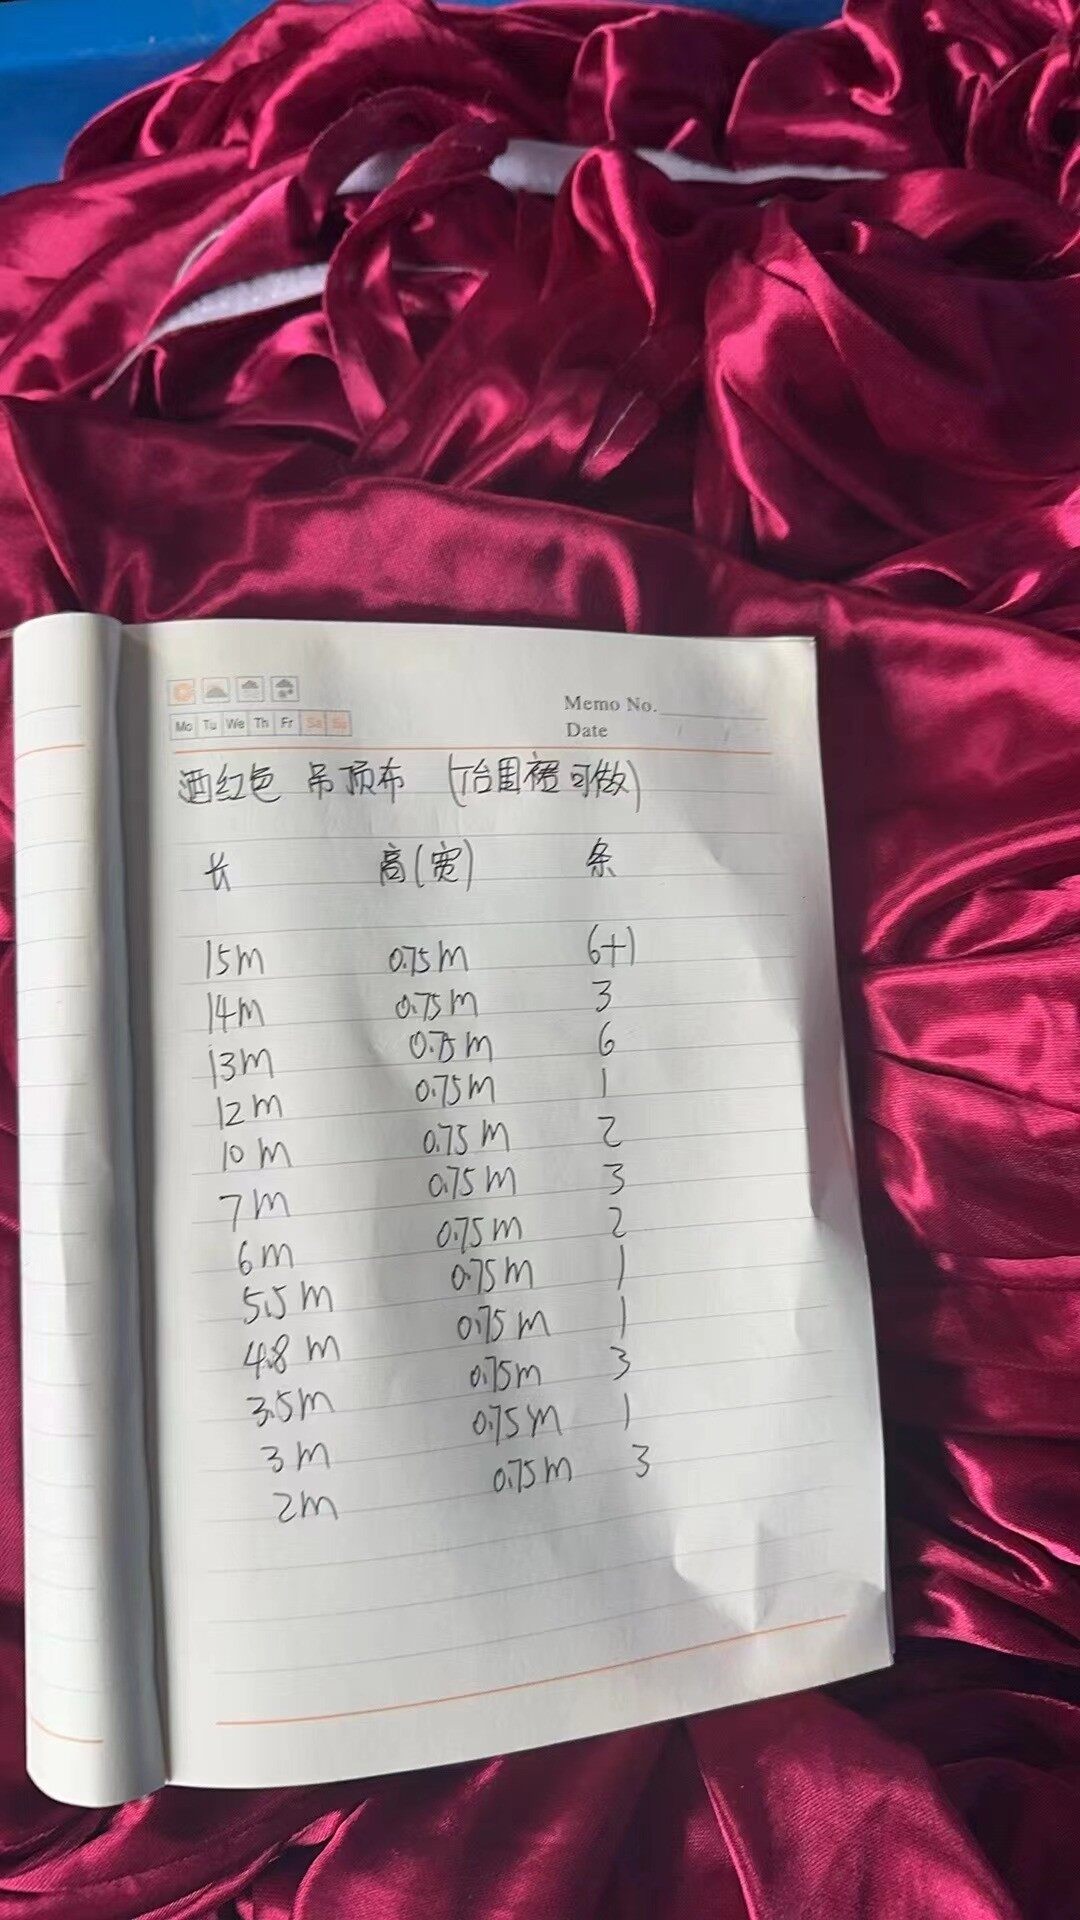 Memo No.
Mo Tu We Th Fr Sa Su
Date / /
酒红色 吊顶布 (T台围裙可做)
长 高(宽) 条
15m 0.75m 6+1
14m 0.75m 3
13m 0.75m 6
12m 0.75m 1
10m 0.75m 2
7m 0.75m 3
6m 0.75m 2
5.5m 0.75m 1
4.8m 0.75m 1
3.5m 0.75m 3
3m 0.75m 1
2m 0.75m 3